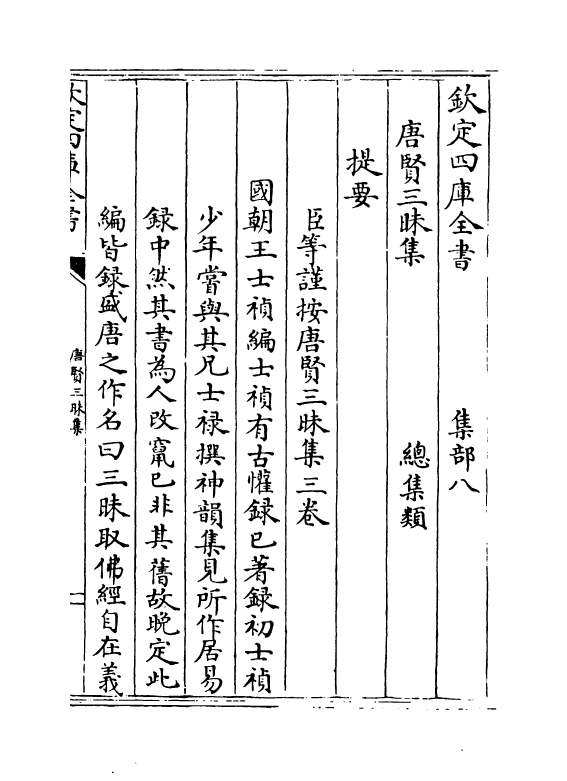 欽定四庫全書　　　　集部八
唐賢三昧集　　　　總集類
提要
臣等謹按唐賢三昧集三卷
國朝王士禎編士禎有古懽録已著録初士禎
少年嘗與其兄士禄撰神韻集見所作居易
録中然其書為人改竄已非其舊故晚定此
編皆録盛唐之作名曰三昧取佛經自在義
欽定四庫全書
唐賢三昧集
一